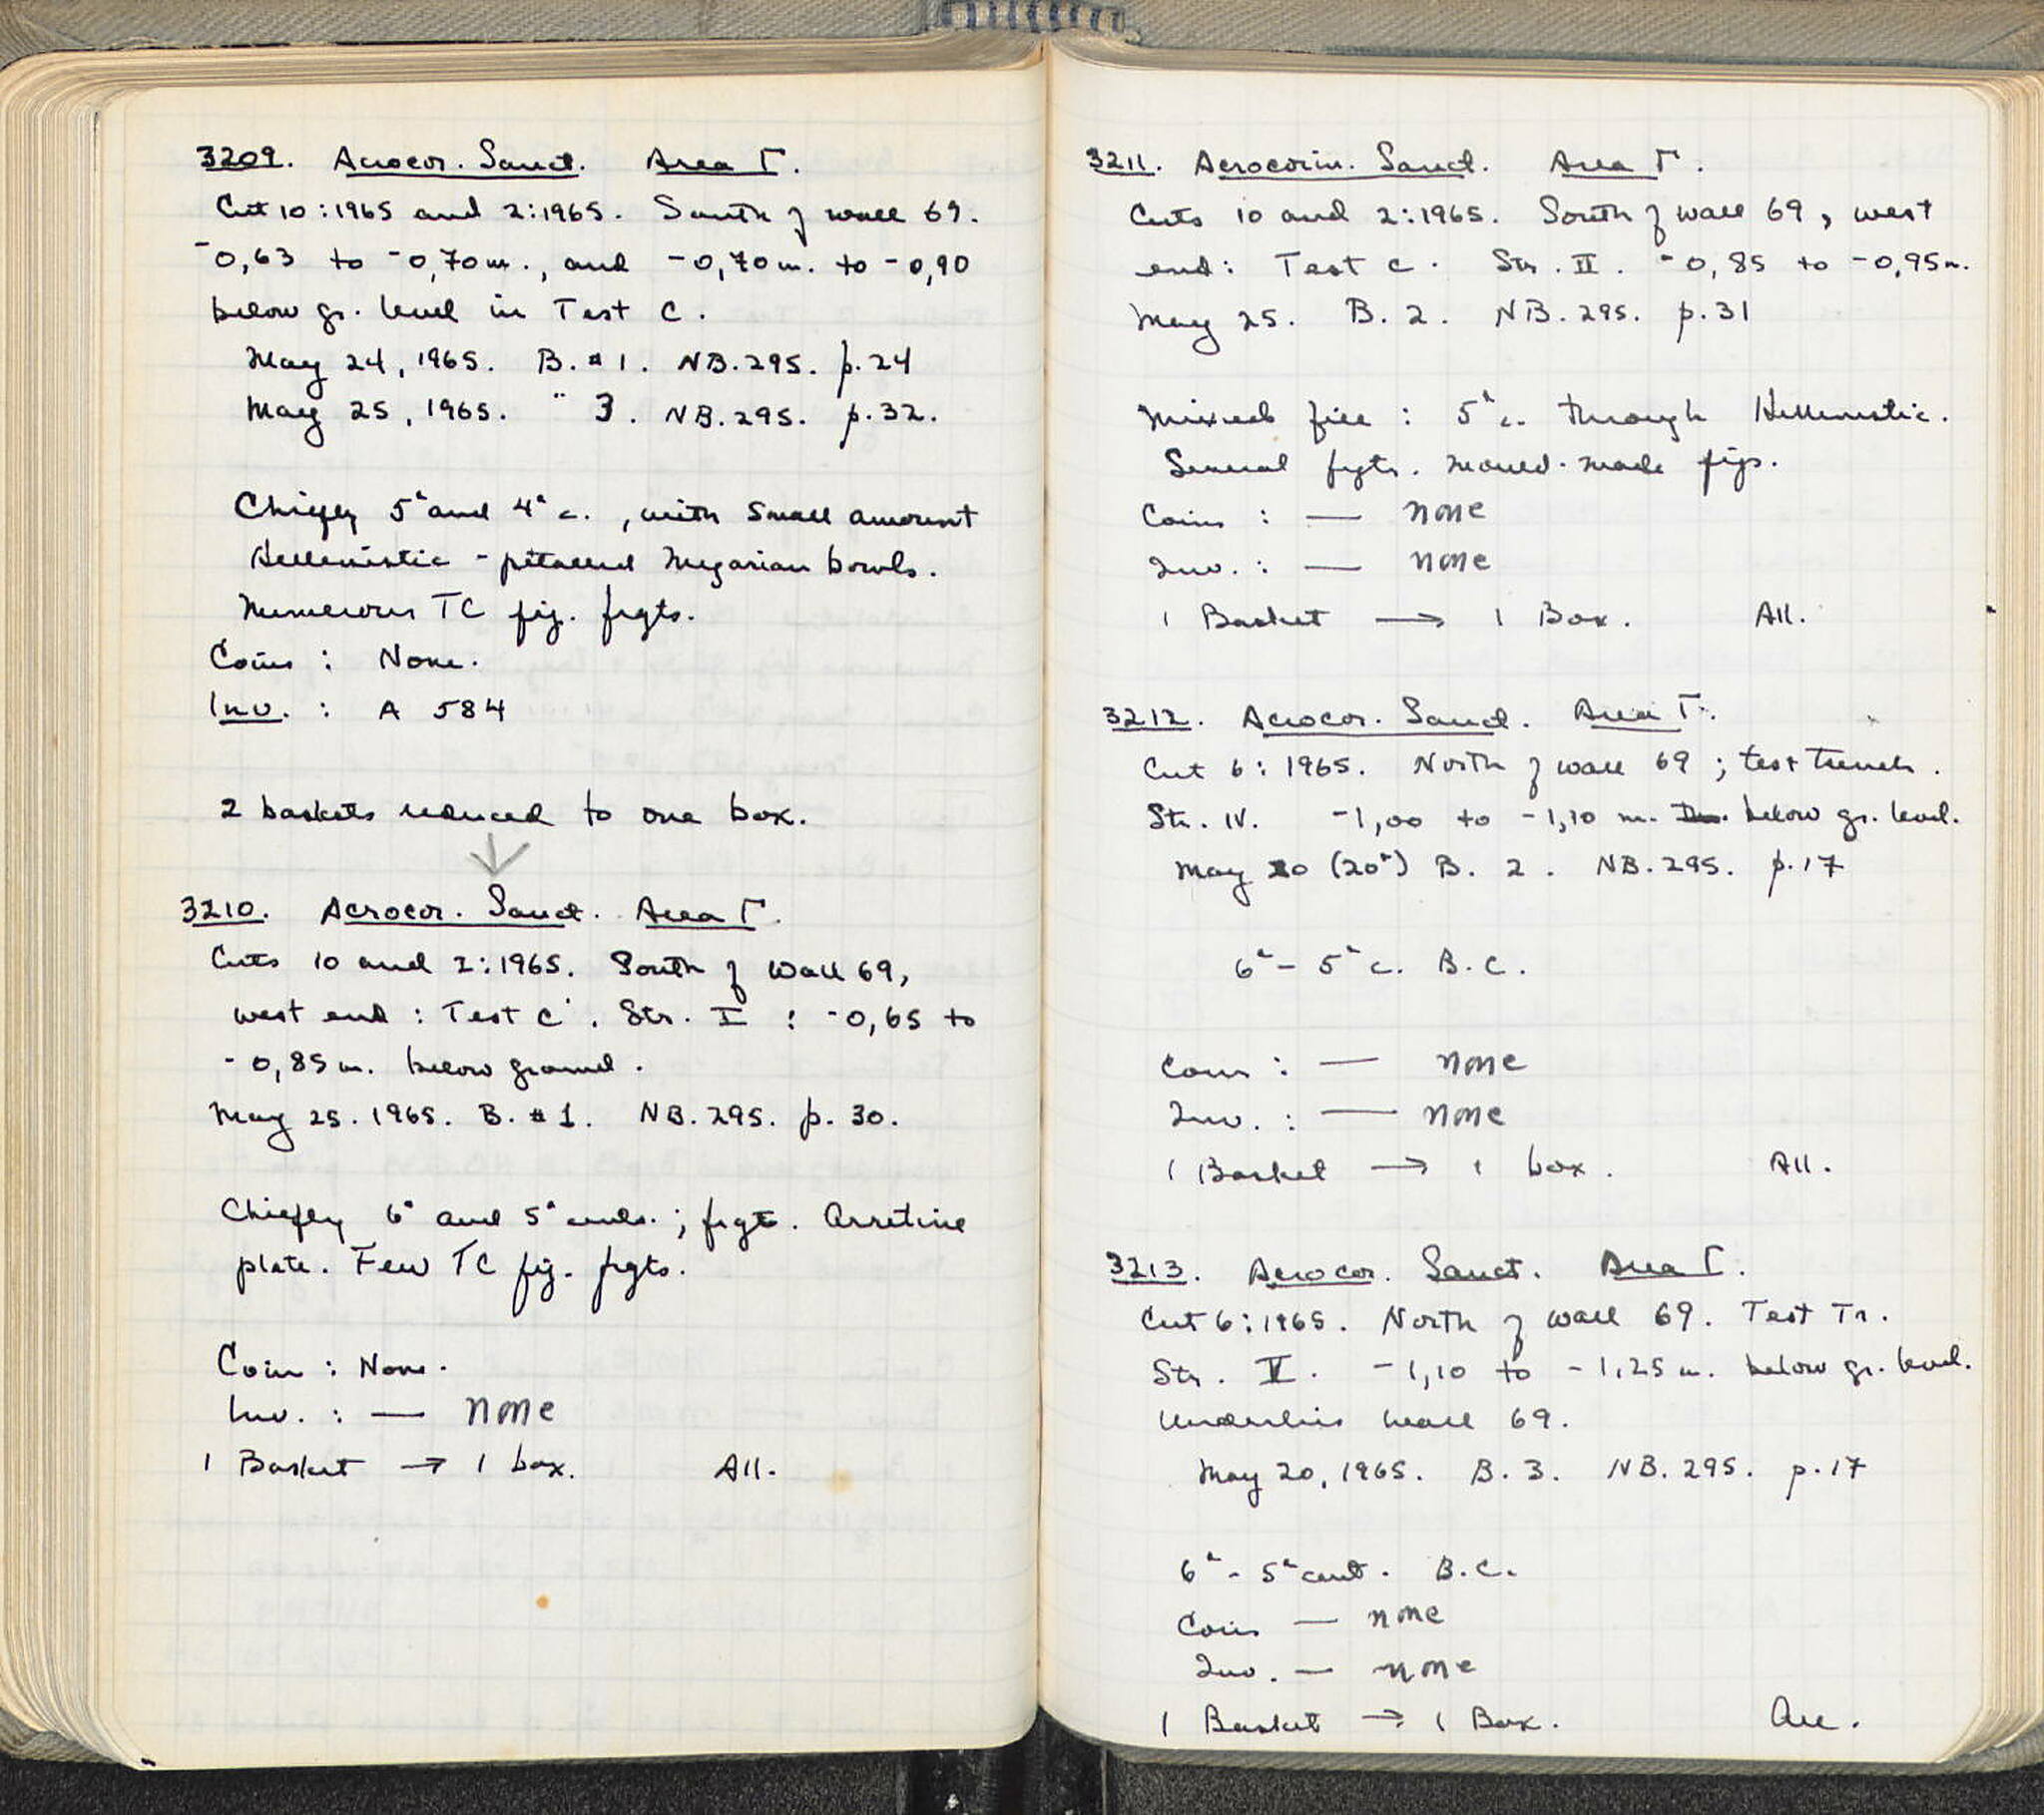 3209. Acrocor. Sanct. Area Γ.
Cut 10:1965 and 2:1965. South of wall 69.
-0,63 to -0,70m., and -0,70m. to -0,90
below gr. level in Test C.
May 24, 1965. B. #1. NB.295. p.24
May 25, 1965. " 3. NB.295. p.32.
Chiefly 5ᵗ and 4ᵗ c., with small amount
Hellenistic - petalled Megarian bowls.
Numerous TC fig. frgts.
Coins : None.
Inv. : A 584
2 baskets reduced to one box.
3210. Acrocor. Sanct. Area Γ.
Cuts 10 and 2:1965. South of Wall 69,
west end : Test C. Str. I : -0,65 to
-0,85m. below ground.
May 25. 1965. B. #1. NB. 295. p. 30.
Chiefly 6ᵗ and 5ᵗ cents.; frgt. Arretine
plate. Few TC fig. frgts.
Coin : None.
Inv. : — none
1 Basket → 1 box. All.
3211. Acrocorin. Sanct. Area Γ.
Cuts 10 and 2:1965. South of wall 69, west
end: Test C. Str. II. -0,85 to -0,95m.
May 25. B. 2. NB. 295. p.31
Mixed fill : 5ᵗ c. through Hellenistic.
Several frgts. mould-made figs.
Coins : — none
Inv. : — none
1 Basket → 1 Box. All.
3212. Acrocor. Sanct. Area Γ.
Cut 6: 1965. North of wall 69; test trench.
Str. IV. -1,00 to -1,10 m. below gr. level.
May 20 (20ᵗ) B. 2. NB.295. p.17
6ᵗ - 5ᵗ c. B.C.
Coins : — none
Inv. : — none
1 Basket → 1 box. All.
3213. Acrocor. Sanct. Area Γ.
Cut 6:1965. North of wall 69. Test Tr.
Str. V. -1,10 to -1,25m. below gr. level.
Underlies wall 69.
May 20, 1965. B. 3. NB. 295. p.17
6ᵗ - 5ᵗ cent. B.C.
Coins — none
Inv. — none
1 Basket → 1 Box. All.